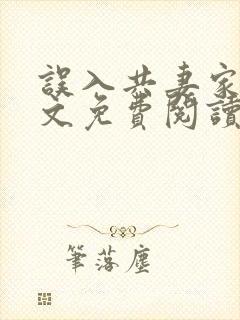 誤入共妻家
文免費閱讀
筆落塵